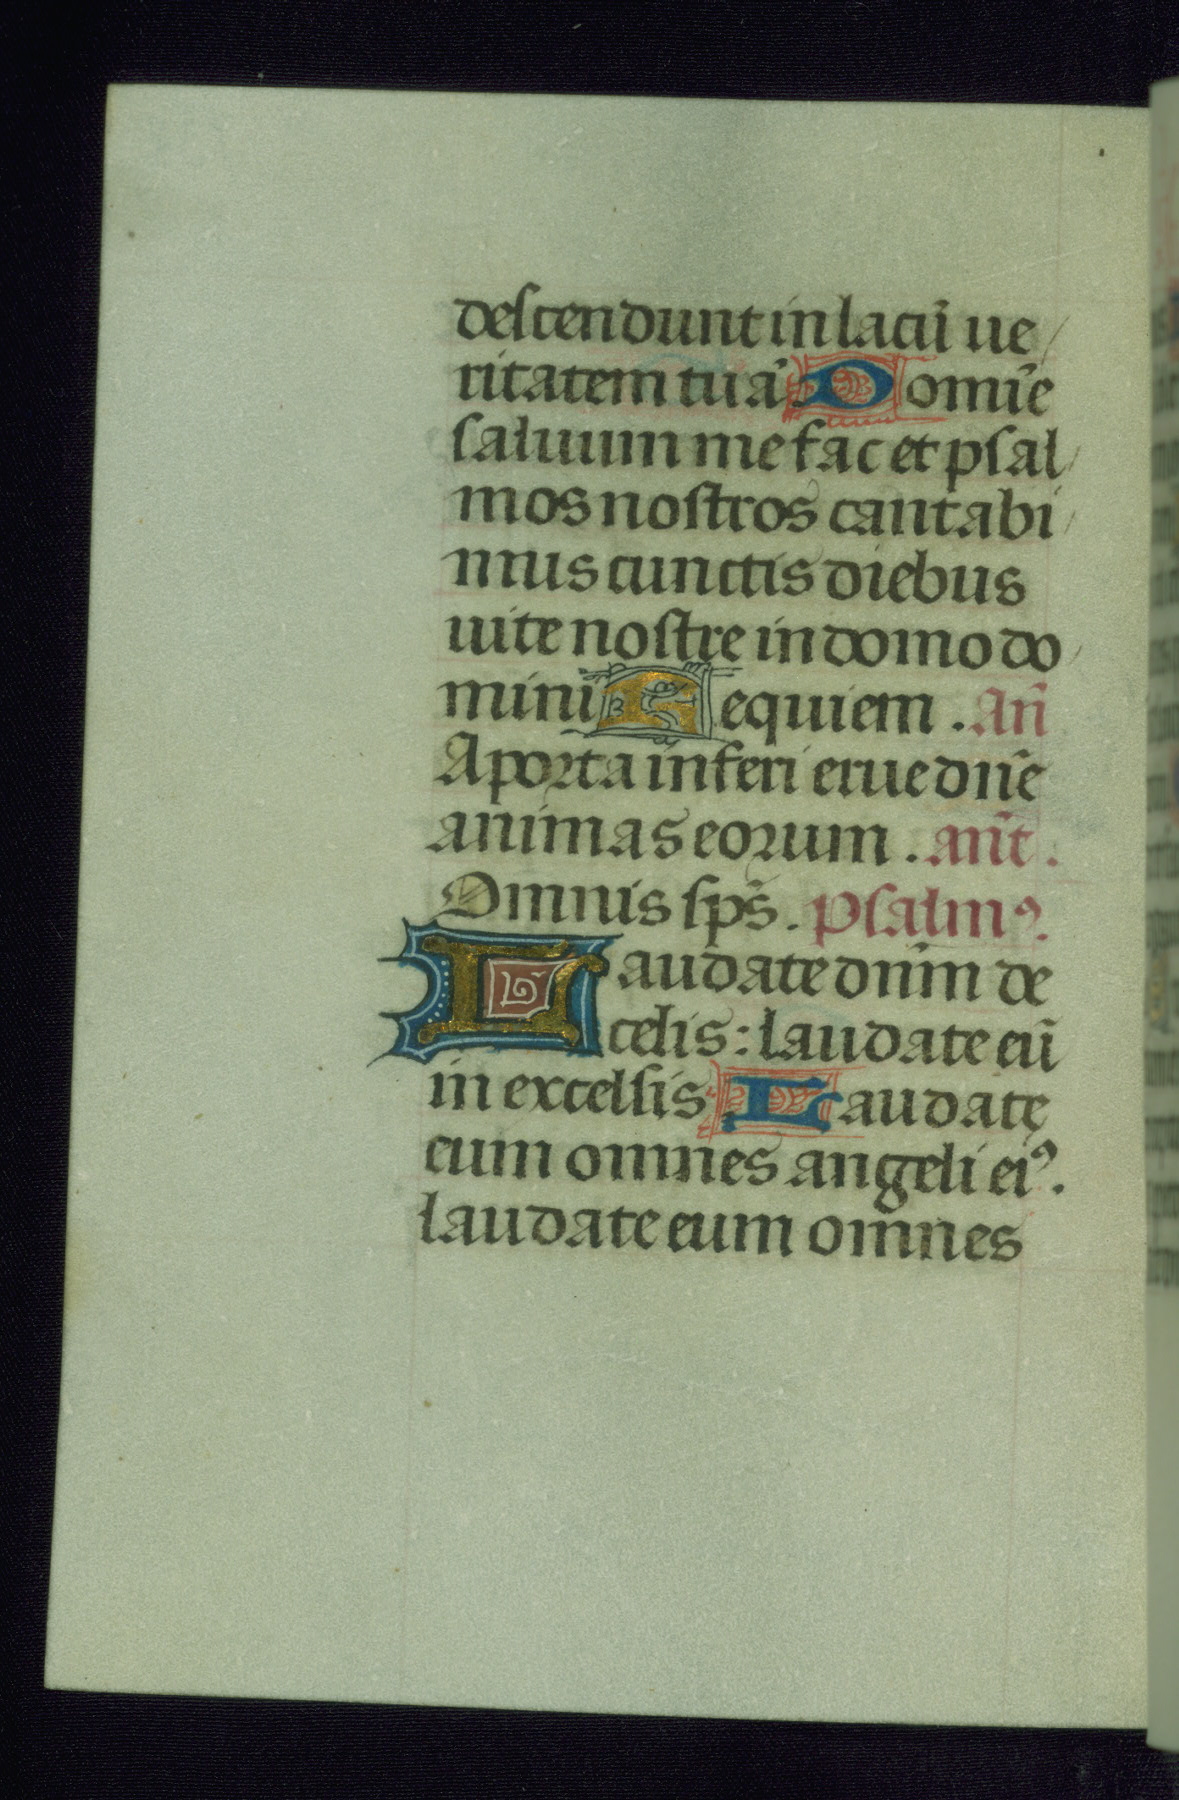 descendunt in lacū ue
ritatem tuā Domīe
saluum me fac et psal
mos nostros cantabi
mus cunctis diebus
uite nostre in domo do
mini Requiem . Añ
A porta inferi erue dñe
animas eorum . ant̄ .
Omnis sp̄s . Psalmꝰ .
Laudate dnm̄ de
celis : laudate eū
in excelsis Laudate
eum omnes angeli eiꝰ .
laudate eum omnes